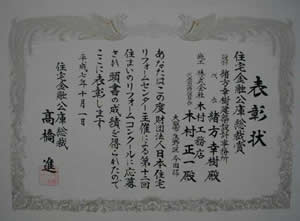 表彰状
住宅金融公庫総裁賞
設計 緒方幸樹建築設計事務所
代表 緒方幸樹殿
施工 株式会社木村工務店
木村正一殿
あなたはこの度財団法人日本住宅
リフォームセンター主催による第十二回
住まいのリフォームコンクールに応募
され頭書の成績を得られたので
ここに表彰します
平成七年十月一日
住宅金融公庫総裁
高橋進